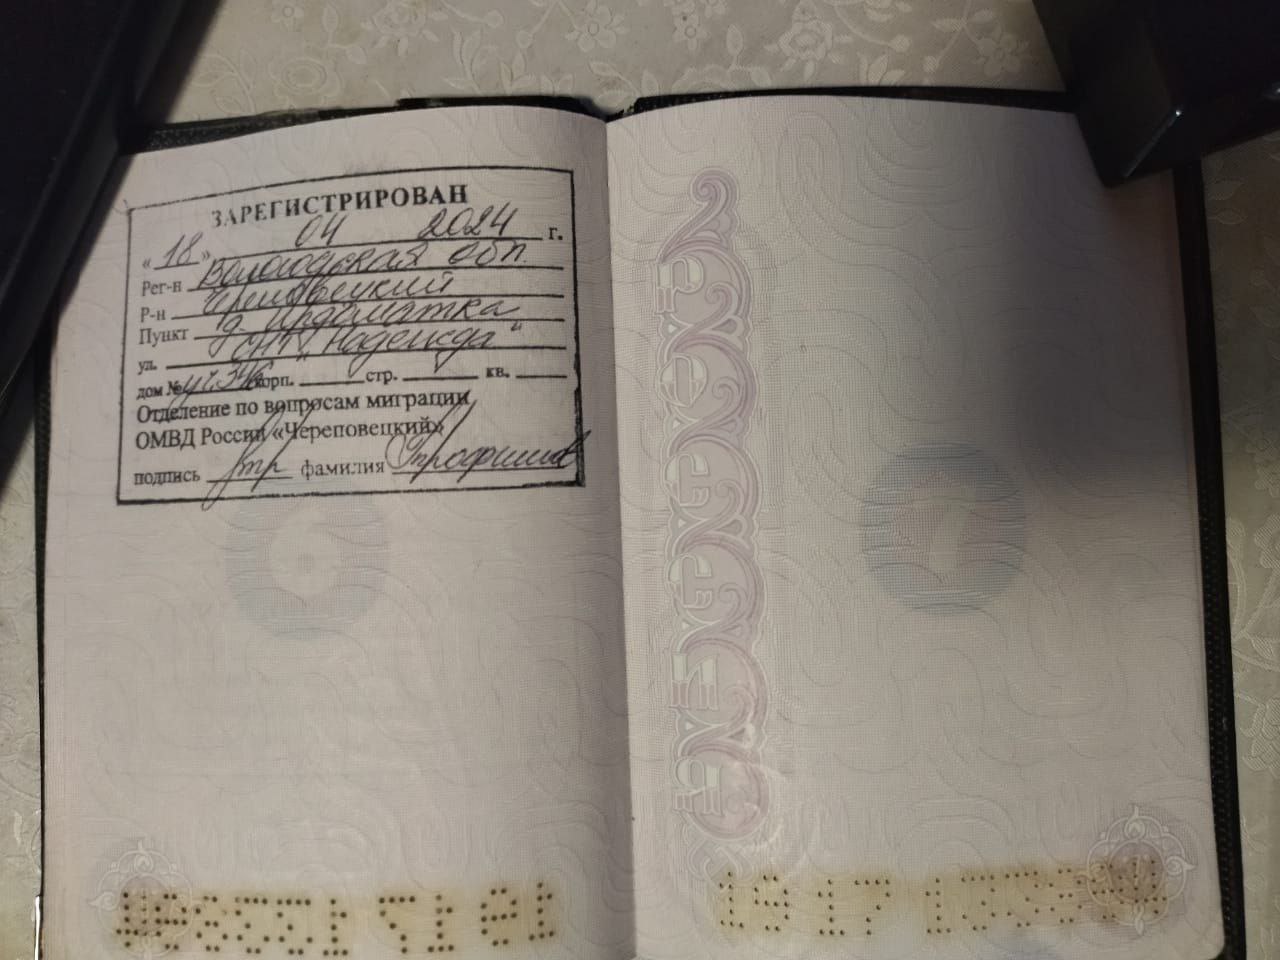 ЗАРЕГИСТРИРОВАН
« 18 » 04 2024 г.
Рег-н Вологодская обл.
Р-н Череповецкий
Пункт д. Ирдоматка
ул. СНТ „Надежда"
дом № уч. корп. стр. кв.
Отделение по вопросам миграции
ОМВД России «Череповецкий»
подпись фамилия Трофимов
6
7
19 17